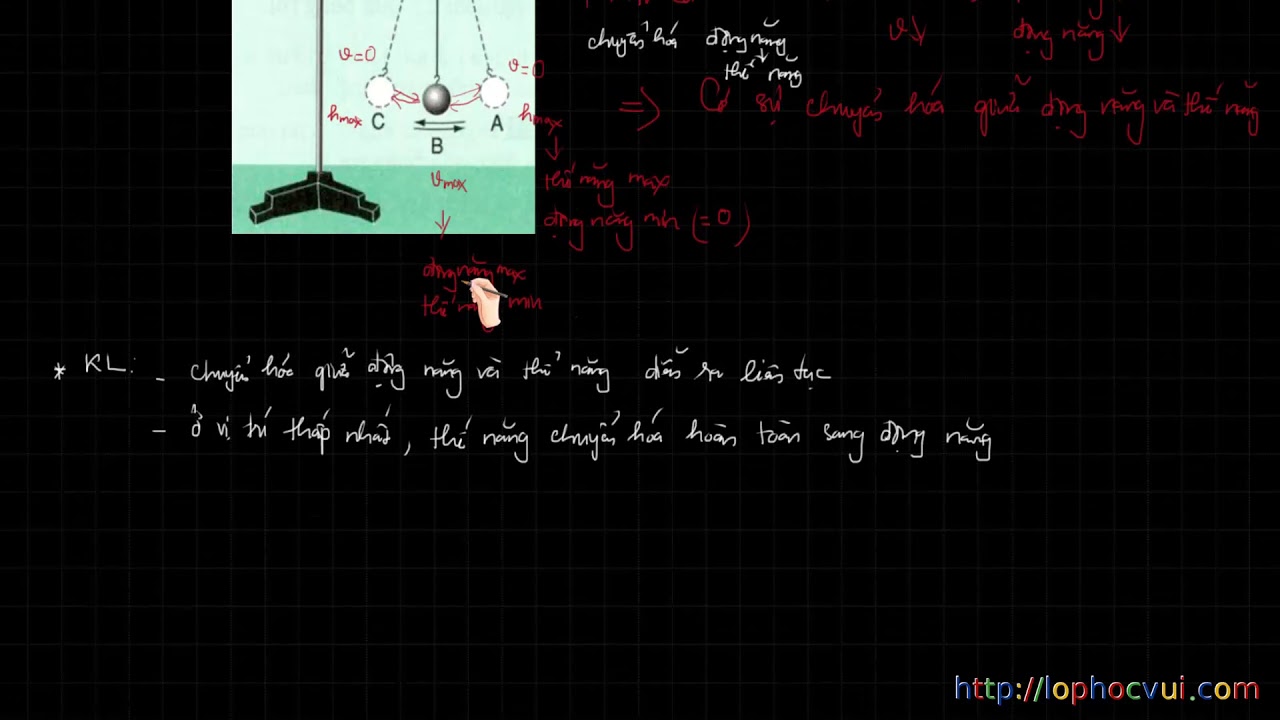 chuyển hóa động năng
thế năng
v↓ động năng↓
=> Có sự chuyển hóa giữa động năng và thế năng
v=0
v=0
hmax C
hmax
A
B
vmax
thế năng max
động năng min (=0)
động năng max
thế min
* KL: - chuyển hóa giữa động năng và thế năng diễn ra liên tục
- Ở vị trí thấp nhất, thế năng chuyển hóa hoàn toàn sang động năng
http://lophocvui.com